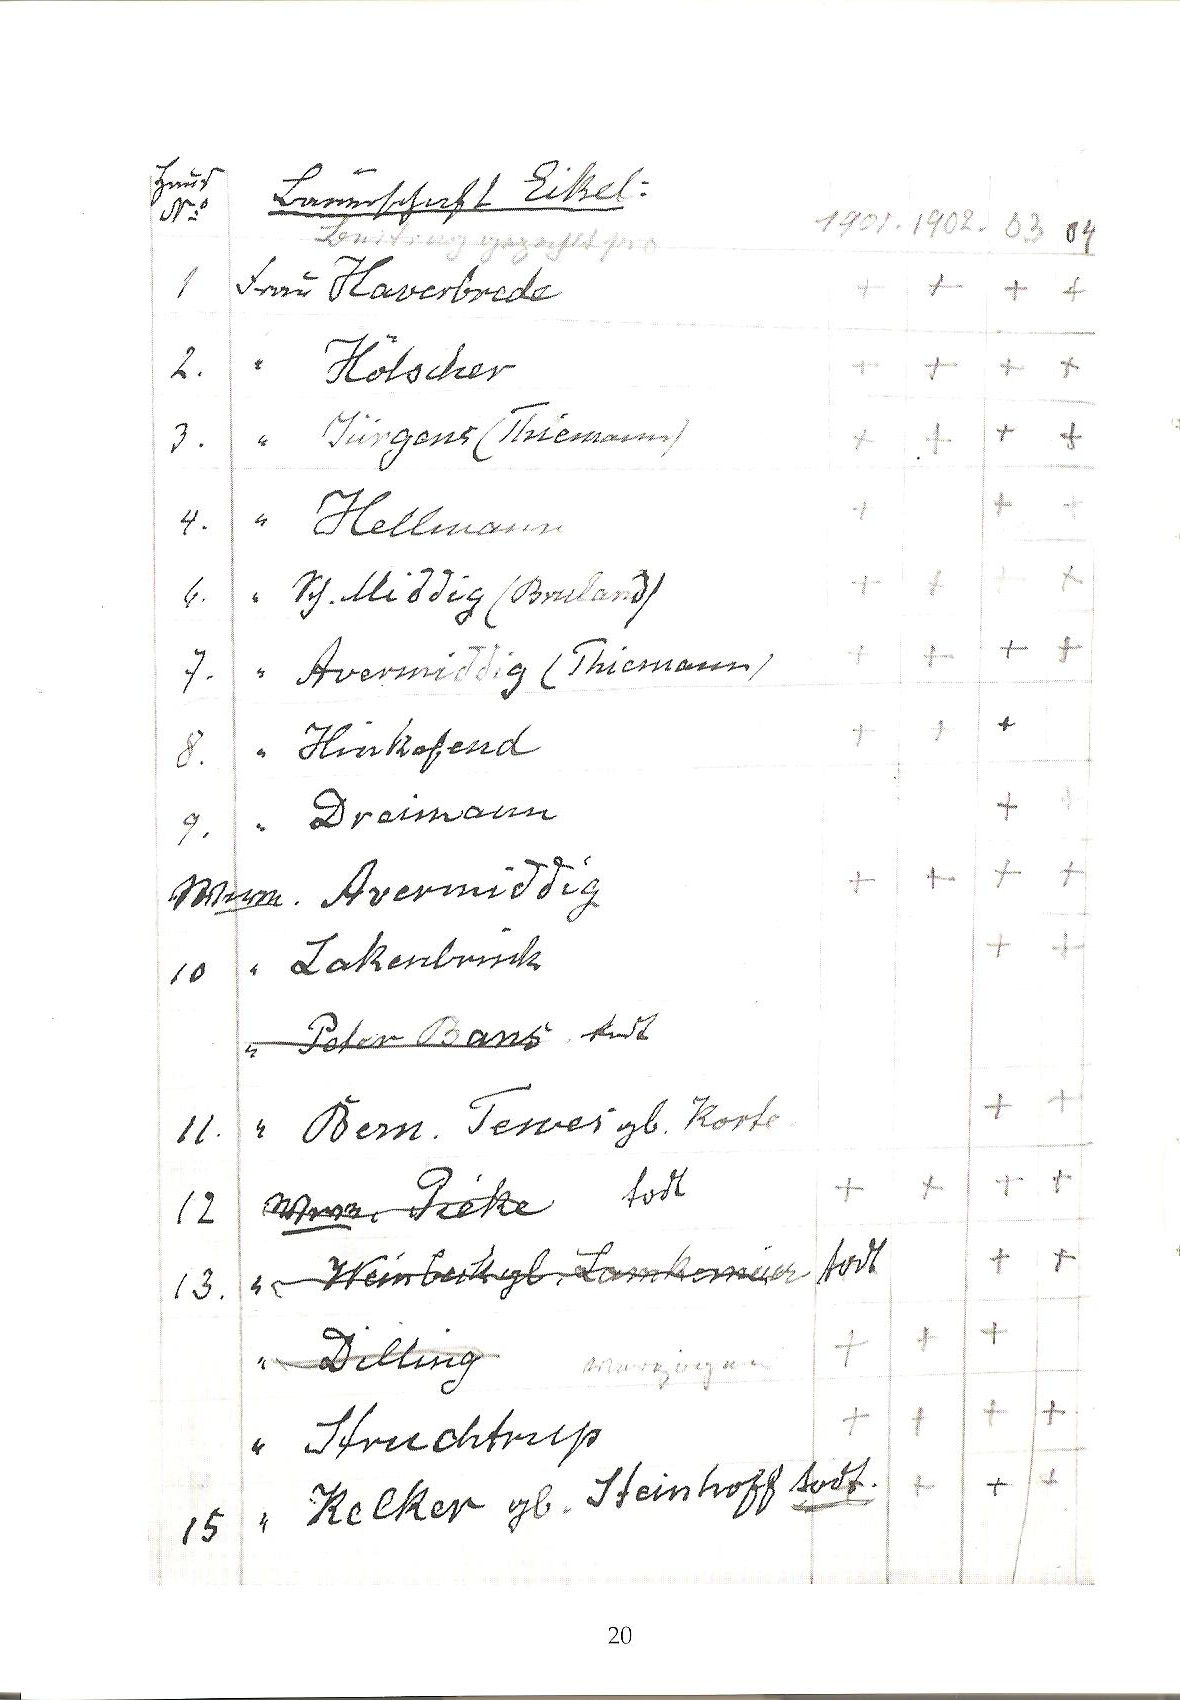 Haus
No
Bauerschaft Eikel:
Beitrag gezahlt pro 1901. 1902. 03 04
1 Frau Haverbrede + + + +
2. " Hölscher + + + +
3. " Jürgens (Thiemann) + + + +
4. " Hellmann + + +
6. " Sch. Middig (Bruland) + + + +
7. " Avermiddig (Thiemann) + + + +
8. " Hinkofend + + +
9. " Dreimann + +
Wwe. Avermiddig + + + +
10 " Lakenbrink + +
" Peter Bans todt
11. " Bern. Tewes gb. Korte + +
12 Wwe. Pieke todt + + + +
13. " Weinbeck gb. Lamkemeier todt + +
" Dilling + + +
" Struchtrup + + + +
15 " Kelker gb. Steinhoff todt. + + +
20